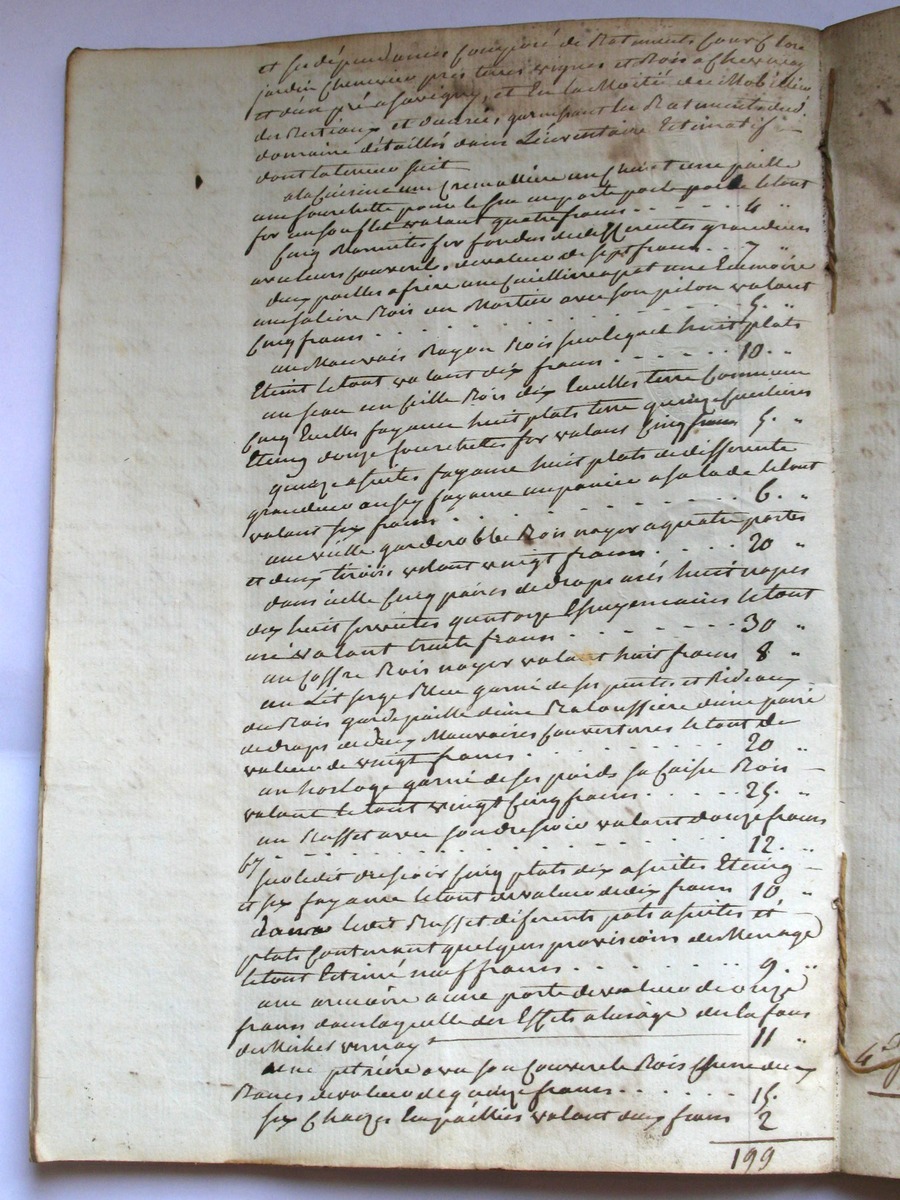 et ses dépendances composé de Batiments Cour Clos
jardin Cheneviere pres terres vignes et Bois a
et d'un pré a Savigny, et En la Moitié du Mobilier
des Bestiaux et denrées garnissant les Batiments dud.
domaine détaillés dans L'inventaire Estimatif
dont la teneur suit
a la Cuisine une Cremallière un une paille
une fourchette pour le feu un porte poele le tout
fer un souflet valant quatre francs . . . . 4 "
Cinq Marmites fer fondu de differentes grandeurs
avec leurs Couvercles de valeur de sept francs . . 7 "
deux poeilles a frire une Cuillière a pot une
une saliere Bois un Mortier avec son pilon valant
Cinq francs . . . . . . . 5. "
un Mauvais Rayon Bois sur lequel huit plats
Etain le tout valant dix francs . . . . . 10. "
un seau un Bois dix Ecuelles terre Commune
Cinq Ecuelles fayance huit plats terre quinze Cuilières
Etaing douze fourchettes fer valant Cinq francs 5. "
quinze assiettes fayance huit plats de differente
grandeur aussy fayance un panier a salade le tout
valant six francs . . . . . . . 6. "
une vielle garderobbe Bois noyer a quatre portes
et deux tiroirs valant vingt francs . . . . 20 "
dans icelle Cinq paires de draps usés huit napes
dix huit serviettes quatorze Essuyemains le tout
usé valant trente francs . . . . . 30 "
un Coffre Bois noyer valant huit francs 8 "
un Lit serge Bleue garni de ses pentes et Rideaux
du Bois garde paille d'une Baloussière d'une paire
de draps de deux Mauvaises Couvertures le tout de
valeur de vingt francs . . . . . . 20 "
un horloge garni de ses poids sa Caisse Bois
valant le tout vingt Cinq francs . . . . . 25. "
un Buffet avec son dressoir valant douze francs
. . . . . . . . . . 12. "
sur ledit dressoir Cinq plats dix assiettes Etaing
et six fayance le tout de valeur de dix francs 10 "
dans ledit Buffet diferents pots assiettes et
plats Contenant quelques provisions de Menage
le tout Estimé neuf francs . . . . . 9. "
une armoire a une porte de valeur de onze
francs dans laquelle des Effets a l'usage de la fame
de Michel vernay 11 "
une petrière avec son Couvercle Bois Chene deux
Bancs de valeur de quinze francs . . . 15.
six Chaizes Empaillées valant deux francs 2
199